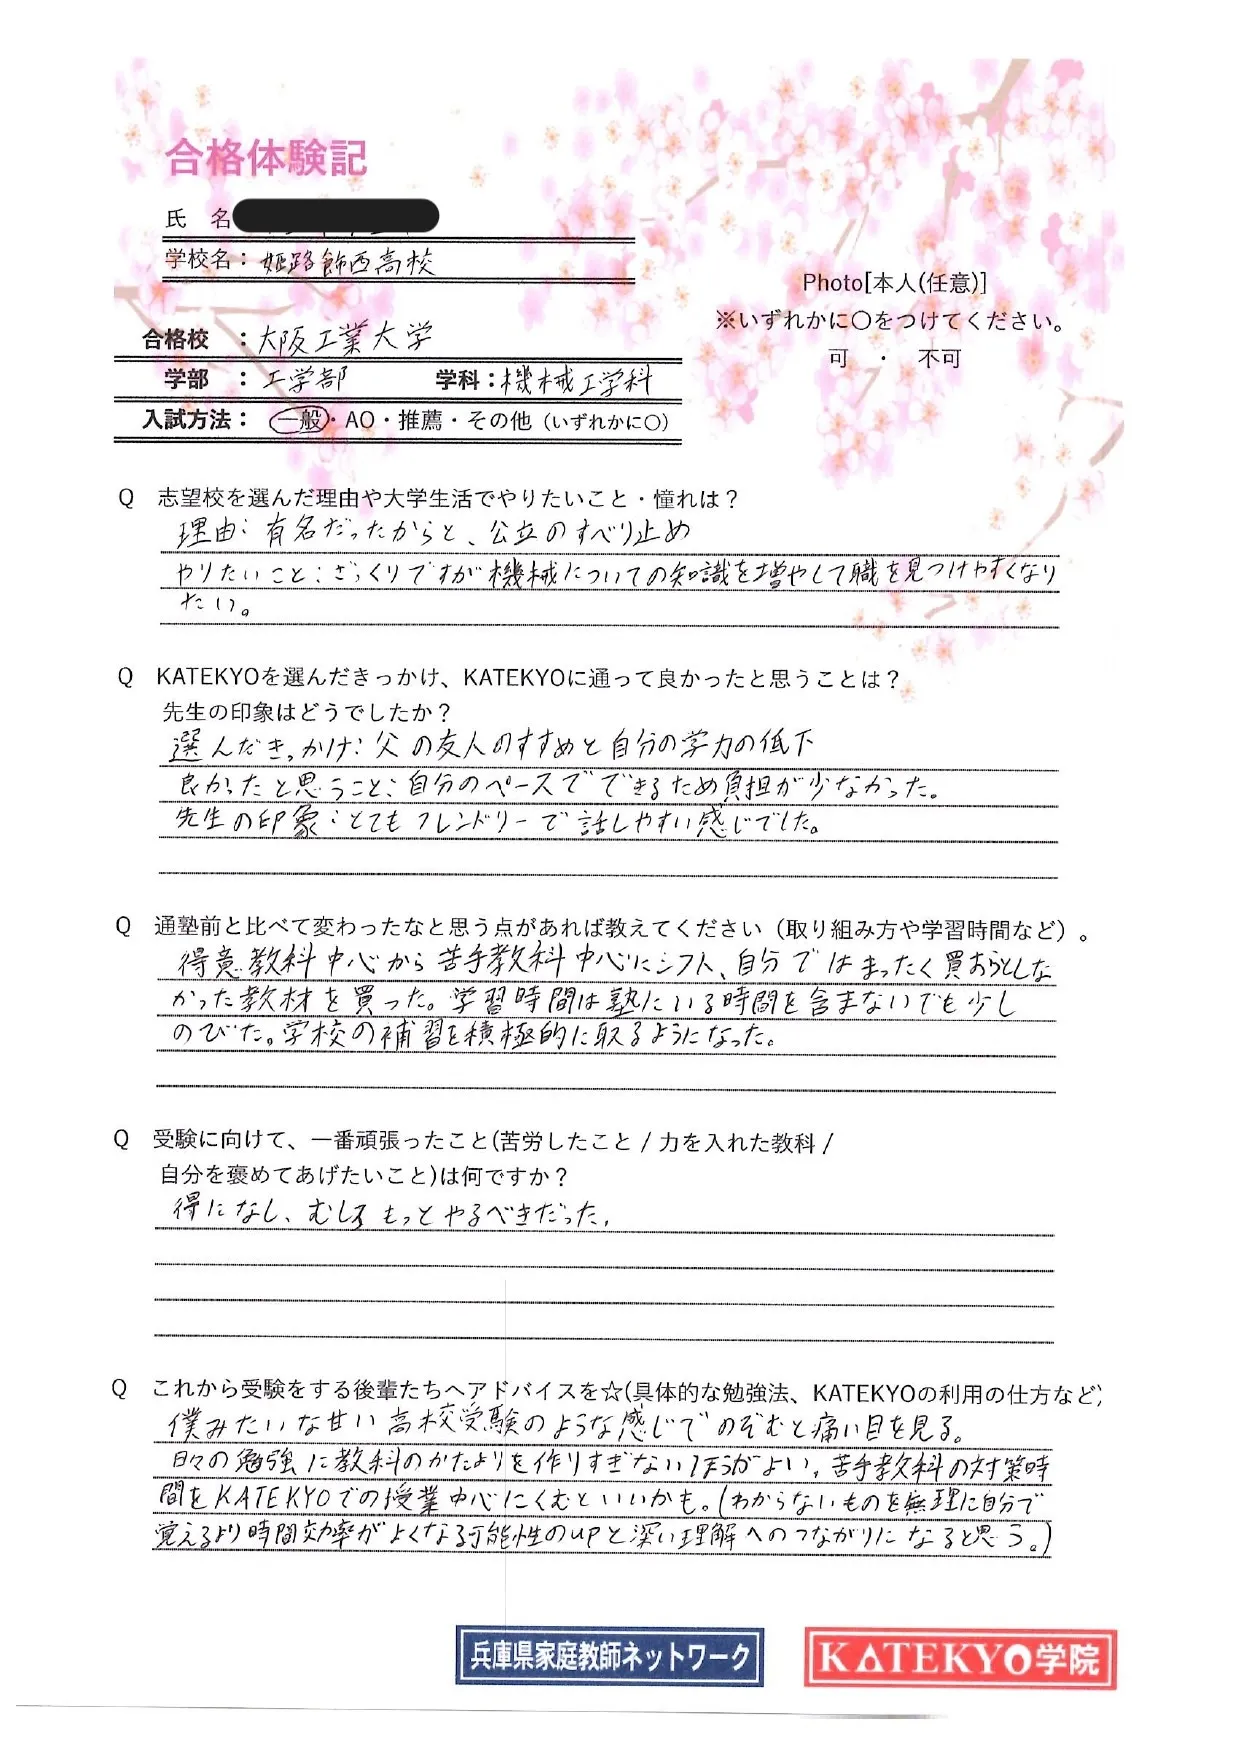 合格体験記
氏 名
学校名：姫路飾西高校
Photo[本人(任意)]
※いずれかに〇をつけてください。
可 ・ 不可
合格校 ：大阪工業大学
学部 ：工学部 学科：機械工学科
入試方法： 一般・AO・推薦・その他（いずれかに〇）
Q 志望校を選んだ理由や大学生活でやりたいこと・憧れは？
理由：有名だったからと、公立のすべり止め
やりたいこと：ざっくりですが機械についての知識を増やして職を見つけやすくなり
たい。
Q KATEKYOを選んだきっかけ、KATEKYOに通って良かったと思うことは？
先生の印象はどうでしたか？
選んだきっかけ：父の友人のすすめと自分の学力の低下
良かったと思うこと：自分のペースでできるため負担が少なかった。
先生の印象：とてもフレンドリーで話しやすい感じでした。
Q 通塾前と比べて変わったなと思う点があれば教えてください（取り組み方や学習時間など）。
得意教科中心から苦手教科中心にシフト、自分ではまったく買おうとしな
かった教材を買った。学習時間は塾にいる時間を含まないでも少し
のびた。学校の補習を積極的に取るようになった。
Q 受験に向けて、一番頑張ったこと(苦労したこと / 力を入れた教科 /
自分を褒めてあげたいこと)は何ですか？
得になし、むしろもっとやるべきだった。
Q これから受験をする後輩たちへアドバイスを☆(具体的な勉強法、KATEKYOの利用の仕方など)
僕みたいな甘い高校受験のような感じでのぞむと痛い目を見る。
日々の勉強に教科のかたよりを作りすぎないほうがよい。苦手教科の対策時
間をKATEKYOでの授業中心にくむといいかも。(わからないものを無理に自分で
覚えるより時間効率がよくなる可能性のupと深い理解へのつながりになると思う。)
兵庫県家庭教師ネットワーク
KATEKYO学院